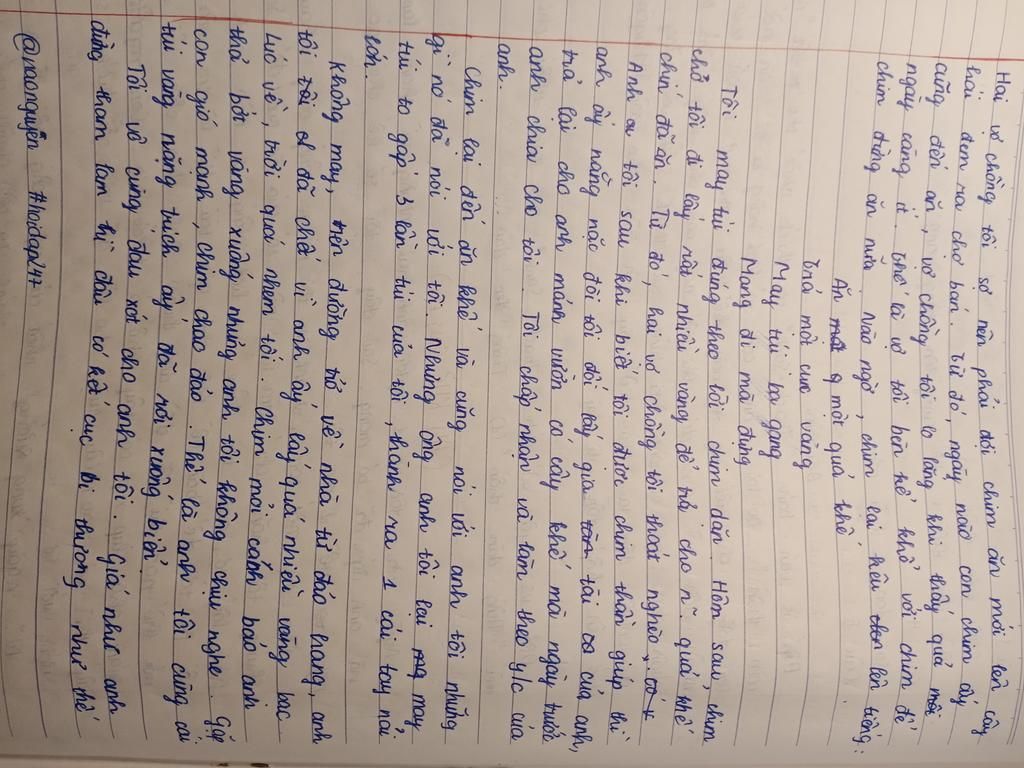 Hai vợ chồng tôi sợ nên phải đợi chim ăn mới leo cây
hái đem ra chợ bán. Từ đó, ngày nào con chim ấy
cũng đến ăn, vợ chồng tôi lo lắng khi thấy quả
ngày càng ít. Thế là vợ tôi bèn kể khổ với chim để
chim đừng ăn nữa. Nào ngờ, chim lại kêu lên tiếng:
Ăn một quả khế
trả một cục vàng
May túi ba gang
Mang đi mà đựng
Tôi may túi đúng theo lời chim dặn. Hôm sau, chim
chở tôi đi lấy rất nhiều vàng để trả cho n~ quả khế
chín đã ăn. Từ đó, hai vợ chồng tôi thoát nghèo.
Anh tôi sau khi biết tôi được chim thần giúp, thì
anh ấy nằng nặc đòi tôi đổi lấy gia tài của anh,
trả lại cho anh mảnh vườn có cây khế mà ngày trước
anh chia cho tôi. Tôi chấp nhận và làm theo y/c của
anh.
Chim lại đến ăn khế và cũng nói với anh tôi những
gì nó đã nói với tôi. Nhưng ông anh tôi lại may
túi to gấp 3 lần túi của tôi, thành ra 1 cái tay nải
lớn.
Không may, trên đường trở về nhà từ đảo hoang, anh
tôi đã chết vì anh ấy lấy quá nhiều vàng bạc
Lúc về, trời quá nhem tối. Chim mỏi cánh bảo anh
thả bớt vàng xuống nhưng anh tôi không chịu nghe. Gặp
cơn gió mạnh, chim chao đảo. Thế là anh tôi cùng cái
túi vàng nặng trịch ấy đã rơi xuống biển.
Tôi vô cùng đau xót cho anh tôi. Giá như anh
đừng tham lam thì đâu có kết cục bi thương như thế
@maonguyễn #hoidap247